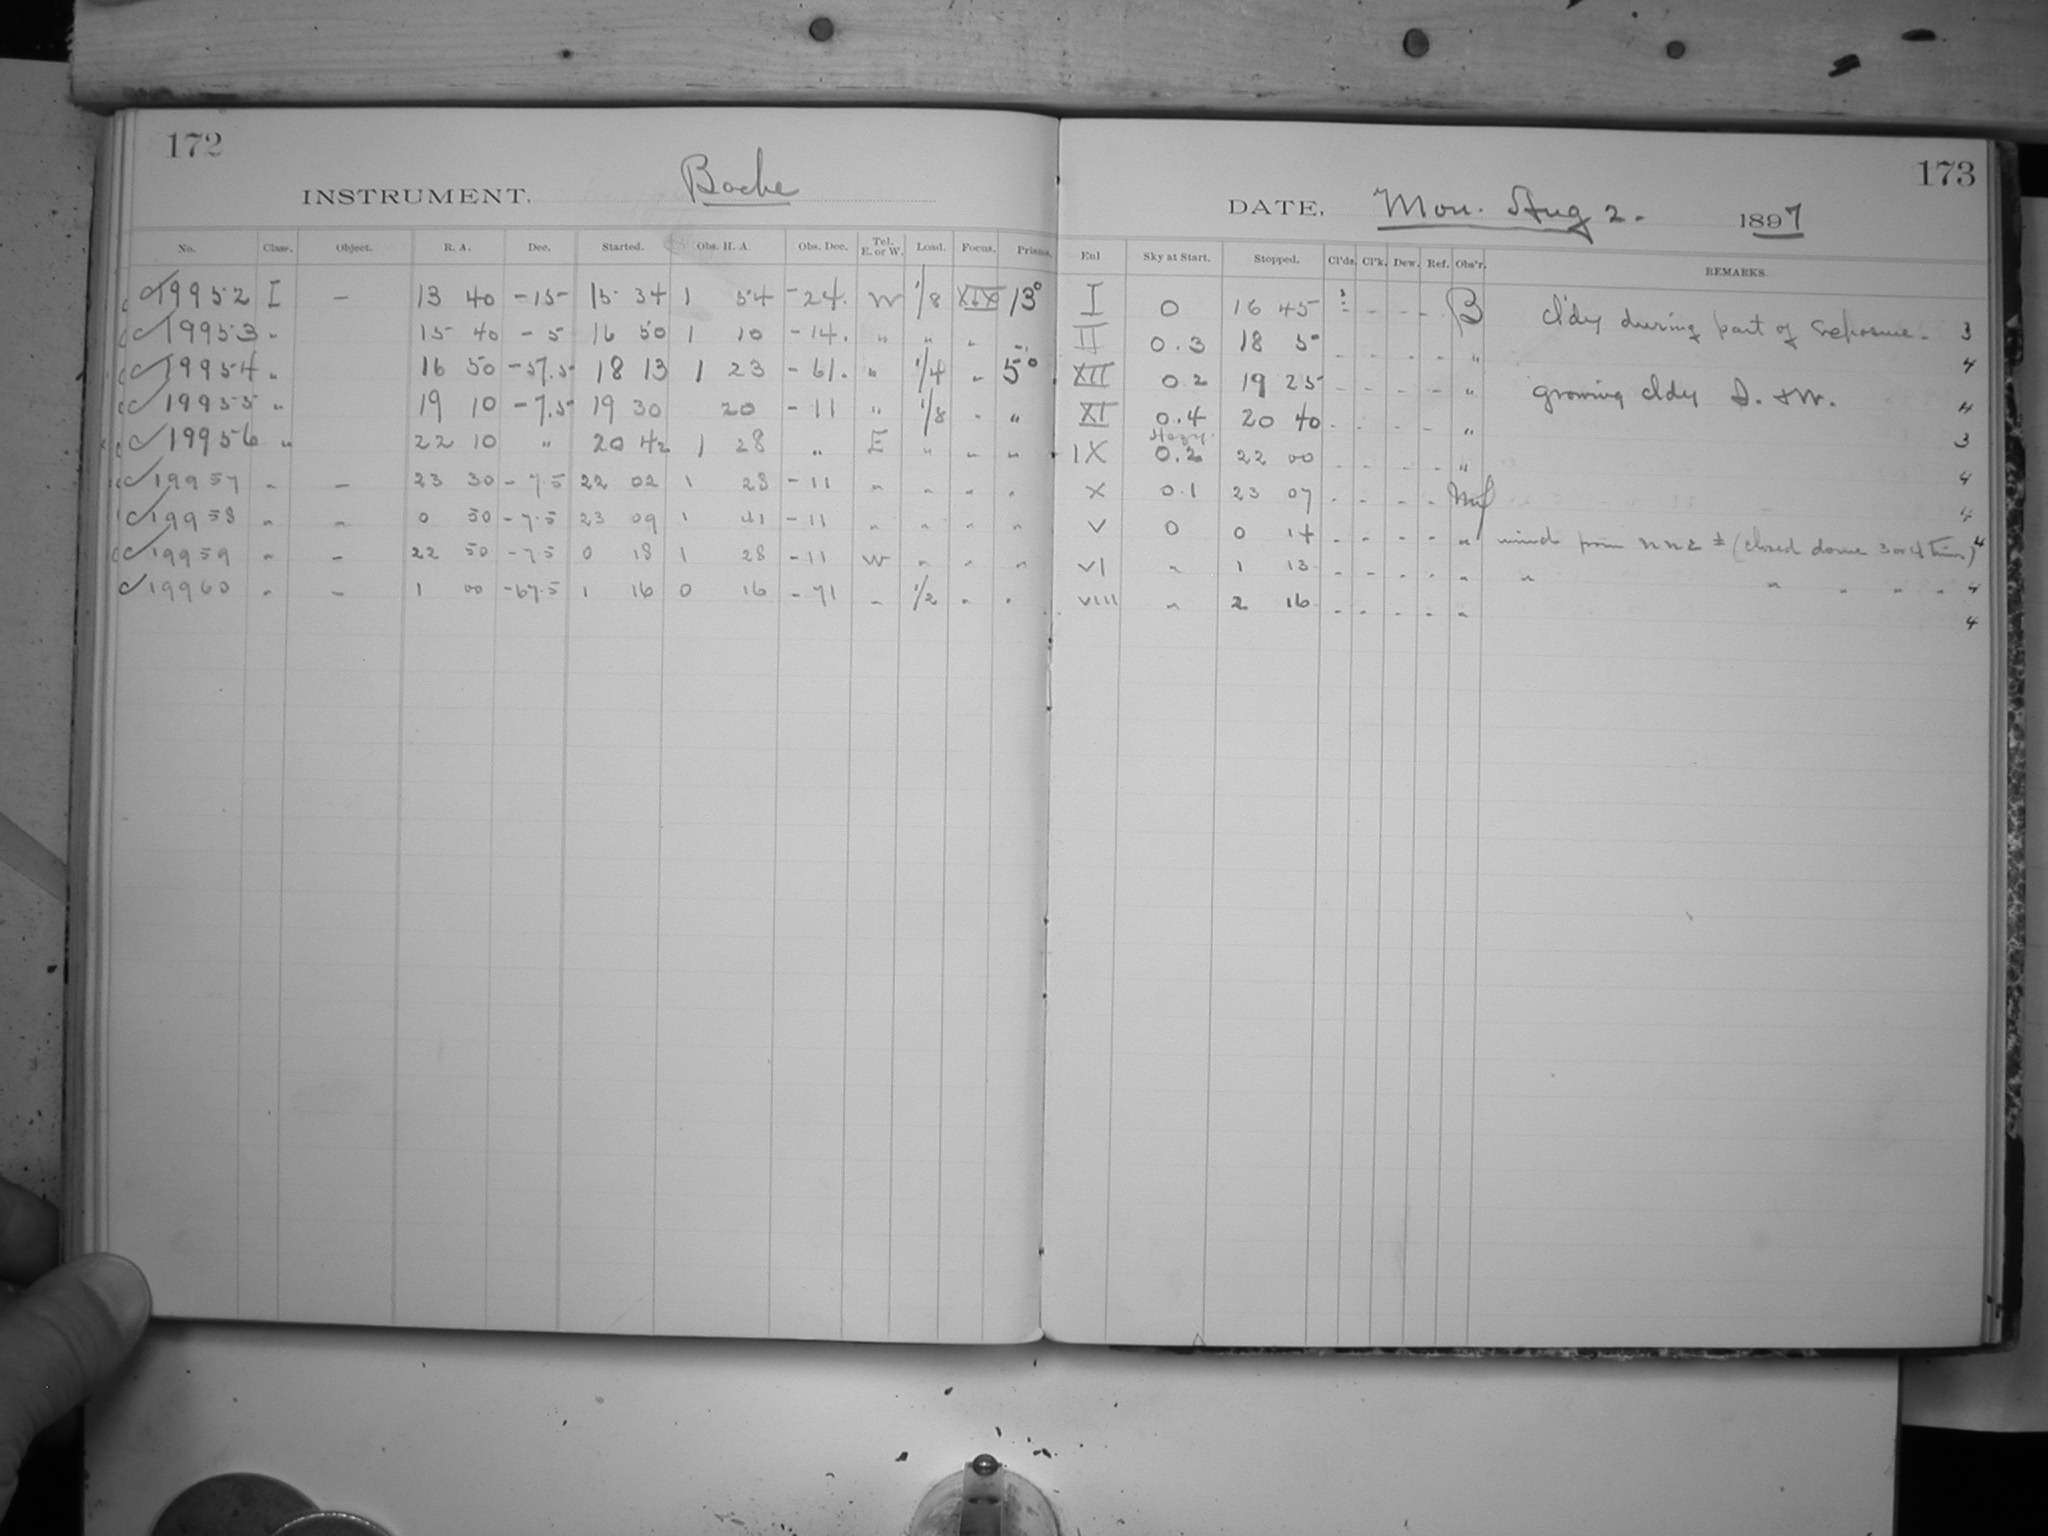 172
INSTRUMENT. Bache
No. Class. Object. R. A. Dec. Started. Obs. H. A. Obs. Dec. Tel. E. or W. Load. Focus. Prisms.
19952 I – 13 40 -15 15 34 1 54 -24. W 1/8 XIX 13°
19953 " 15 40 - 5 16 50 1 10 -14. " " " "
19954 " 16 50 -57.5 18 13 1 23 -61. " 1/4 " 5°
19955 " 19 10 -7.5 19 30 20 -11 " 1/8 " "
19956 " 22 10 " 20 42 1 28 " E " " "
19957 " – 23 30 -7.5 22 02 1 28 -11 " " " "
19958 " " 0 50 -7.5 23 09 1 41 -11 " " " "
19959 " – 22 50 -7.5 0 18 1 28 -11 W " " "
19960 " – 1 00 -67.5 1 16 0 16 -71 " 1/2 " "
173
DATE, Mon. Aug 2. 1897
Enl Sky at Start. Stopped. Cl'ds. Cl'k. Dew. Ref. Obs'r. REMARKS.
I 0 16 45 - - - B cl'dy during part of exposure. 3
II 0.3 18 5 - - - - " 4
XII 0.2 19 25 - - - - " growing cldy S. + W. 4
XI 0.4 20 40 - - - - " 3
IX Hazy. 0.2 22 00 - - - - " 4
X 0.1 23 07 - - - - 4
V 0 0 14 - - - - " wind from NNE ± (closed dome 3 or 4 times) 4
VI " 1 13 - - - - " " " " " " 4
VIII " 2 16 - - - - " 4